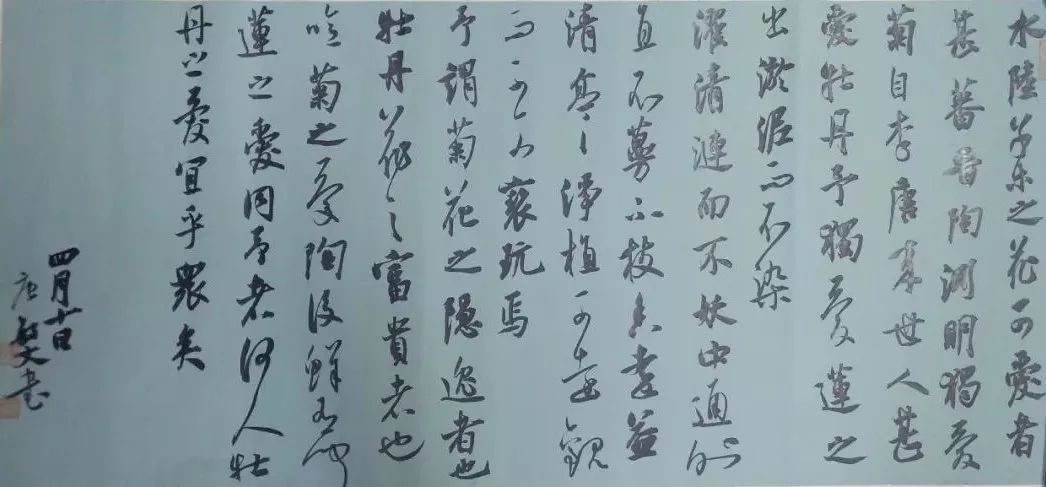 水陸草木之花可愛者
甚蕃晉陶淵明獨愛
菊自李唐來世人甚
愛牡丹予獨愛蓮之
出淤泥而不染
濯清漣而不妖中通外
直不蔓不枝香遠益
清亭亭淨植可遠觀
而不可褻玩焉
予謂菊花之隱逸者也
牡丹花之富貴者也
噫菊之愛陶後鮮有聞
蓮之愛同予者何人牡
丹之愛宜乎衆矣
四月十日
書